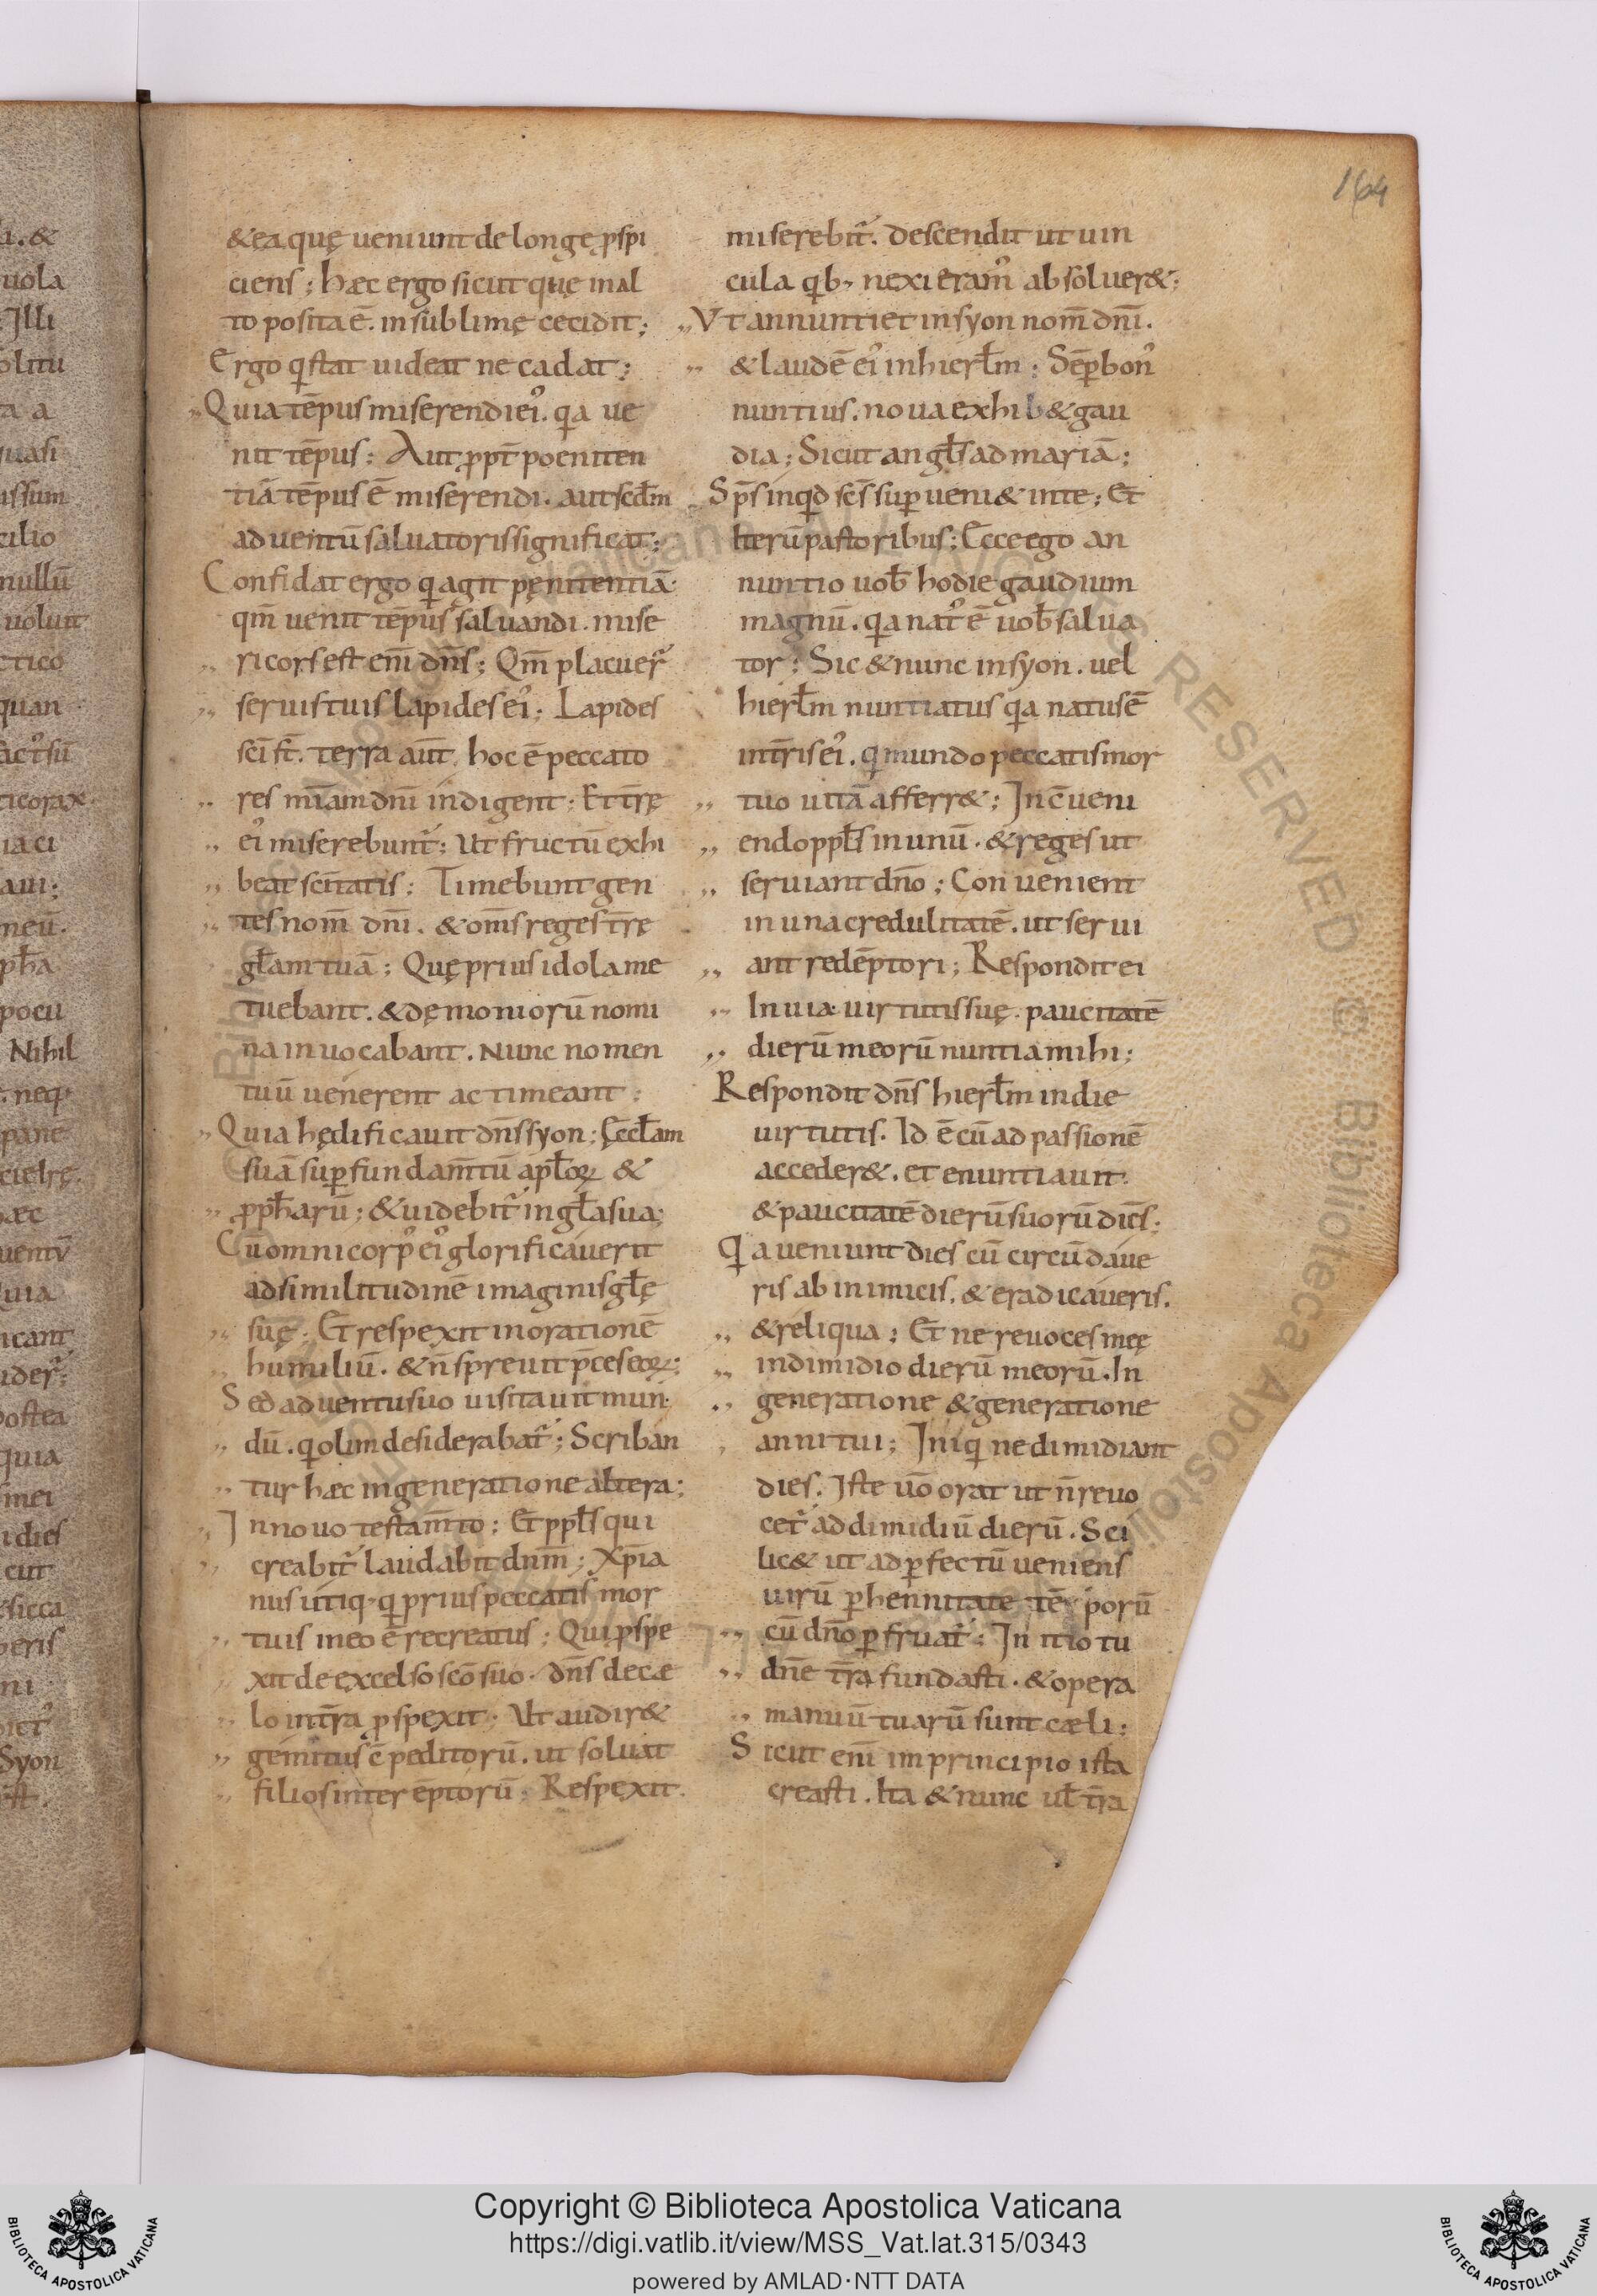 164
&ea quę ueniunt de longe ꝓspi
ciens; hæc ergo sicut quę in al
to posita ē. in sublimę cecidit;
Ergo q stat uideat ne cadat;
Quia tēpus miserendi ei᾽. qa ue
nit tēpus; Aut ꝓpt̄ poeniten
tiā tēpus ē miserendi. aut scđm
aduentū saluatoris significat;
Confidat ergo q agit pęnitentiā.
qm̄ uenit tēpus saluandi. mise
ricors est eni dn̄s; Qm̄ placuer̄
seruis tuis lapides ei᾽; Lapides
sc̄i st̄. terra aūt hoc ē peccato
res mīam dn̄i indigent; Et tr̄ę
ei᾽ miserebunt̄; Ut fructū exhi
beat sc̄itatis; Timebunt gen
tes nom̄ dn̄i. & om̄s reges tr̄ę
gl̄am tuā; Quę prius idola me
tuebant. & dęmoniorū nomi
na inuocabant. Nunc nomen
tuū uenerent ac timeant;
Quia hędificauit dn̄s syon; Ęccl̄am
suā suꝑ fundam̄tū apl̄oꝝ &
ꝓph̄arū; & uidebit̄ in gl̄a sua;
Cū omni corp᾽ ei᾽ glorificauerit
ad similitudinē imaginis gl̄ę
suę; Et respexit in orationē
humiliū. & n̄ spreuit p̄ces eoꝝ;
Sed aduentu suo uisitauit mun
dū. q olim desiderabat̄; Scriban
tur hæc in generatione altera;
In nouo testam̄to; Et ppl̄s qui
creabit̄ laudabit dnm̄; Xp̄ia
nus utiq. q prius peccatis mor
tuis in eo ē recreatus; Qui ꝓspe
xit de excelso sc̄o suo. dn̄s de cæ
lo in tr̄ā ꝓspexit; Ut audir&
gemitus c̄peditorū. ut soluat
filios interēptorū; Respexit.
miserebit̄. descendit ut uin
cula qb. nexi eram᾽ absoluer&;
Vt annuntiet in syon nom̄ dn̄i.
& laudē ei᾽ in hierl̄m; Sēꝑ bon᾽
nuntius. noua exhib& gau
dia; Sicut angl̄s ad mariā;
Sp̄s inqd sc̄s suꝑueni& in te; Et
iterū pastoribus; Ecce ego an
nuntio uob̄ hodie gaudium
magnū. qa nat᾽ ē uob̄ salua
tor; Sic & nunc in syon. uel
hierl̄m nuntiatus qa natus ē
in tr̄is ei᾽. q mundo peccatis mor
tuo uitā afferr&; In c̄ueni
endo ppl̄s in unū. & reges ut
seruiant dn̄o; Conuenient
in una credulitatē. ut serui
ant redēptori; Respondit ei
In uia uirtutis suę. paucitatē
dierū meorū nuntia mihi;
Respondit dn̄s hierl̄m in die
uirtutis. Id ē cū ad passionē
acceder&. et enuntiauit.
& paucitatē dierū suorū dicēs;
Qa ueniunt dies cū circūdaue
ris ab inimicis. & eradicaueris.
& reliqua; Et ne reuoces mee
in dimidio dierū meorū. In
generatione & generatione
anni tui; Iniq ne dimidiant
dies. Iste uo᾽ orat ut n̄ reuo
cet̄ ad dimidiū dierū. Sci
lic& ut ad ꝑfectū ueniens
uirū ꝑhennitate tēporū
cū dn̄o ꝑfruat̄; In itio tu
dn̄e tr̄ā fundasti. & opera
manuū tuarū sunt cæli;
Sicut eni in principio ista
creasti. Ita & nunc ul̄ tr̄a
Copyright © Biblioteca Apostolica Vaticana
https://digi.vatlib.it/view/MSS_Vat.lat.315/0343
powered by AMLAD·NTT DATA
BIBLIOTECA APOSTOLICA VATICANA
BIBLIOTECA APOSTOLICA VATICANA